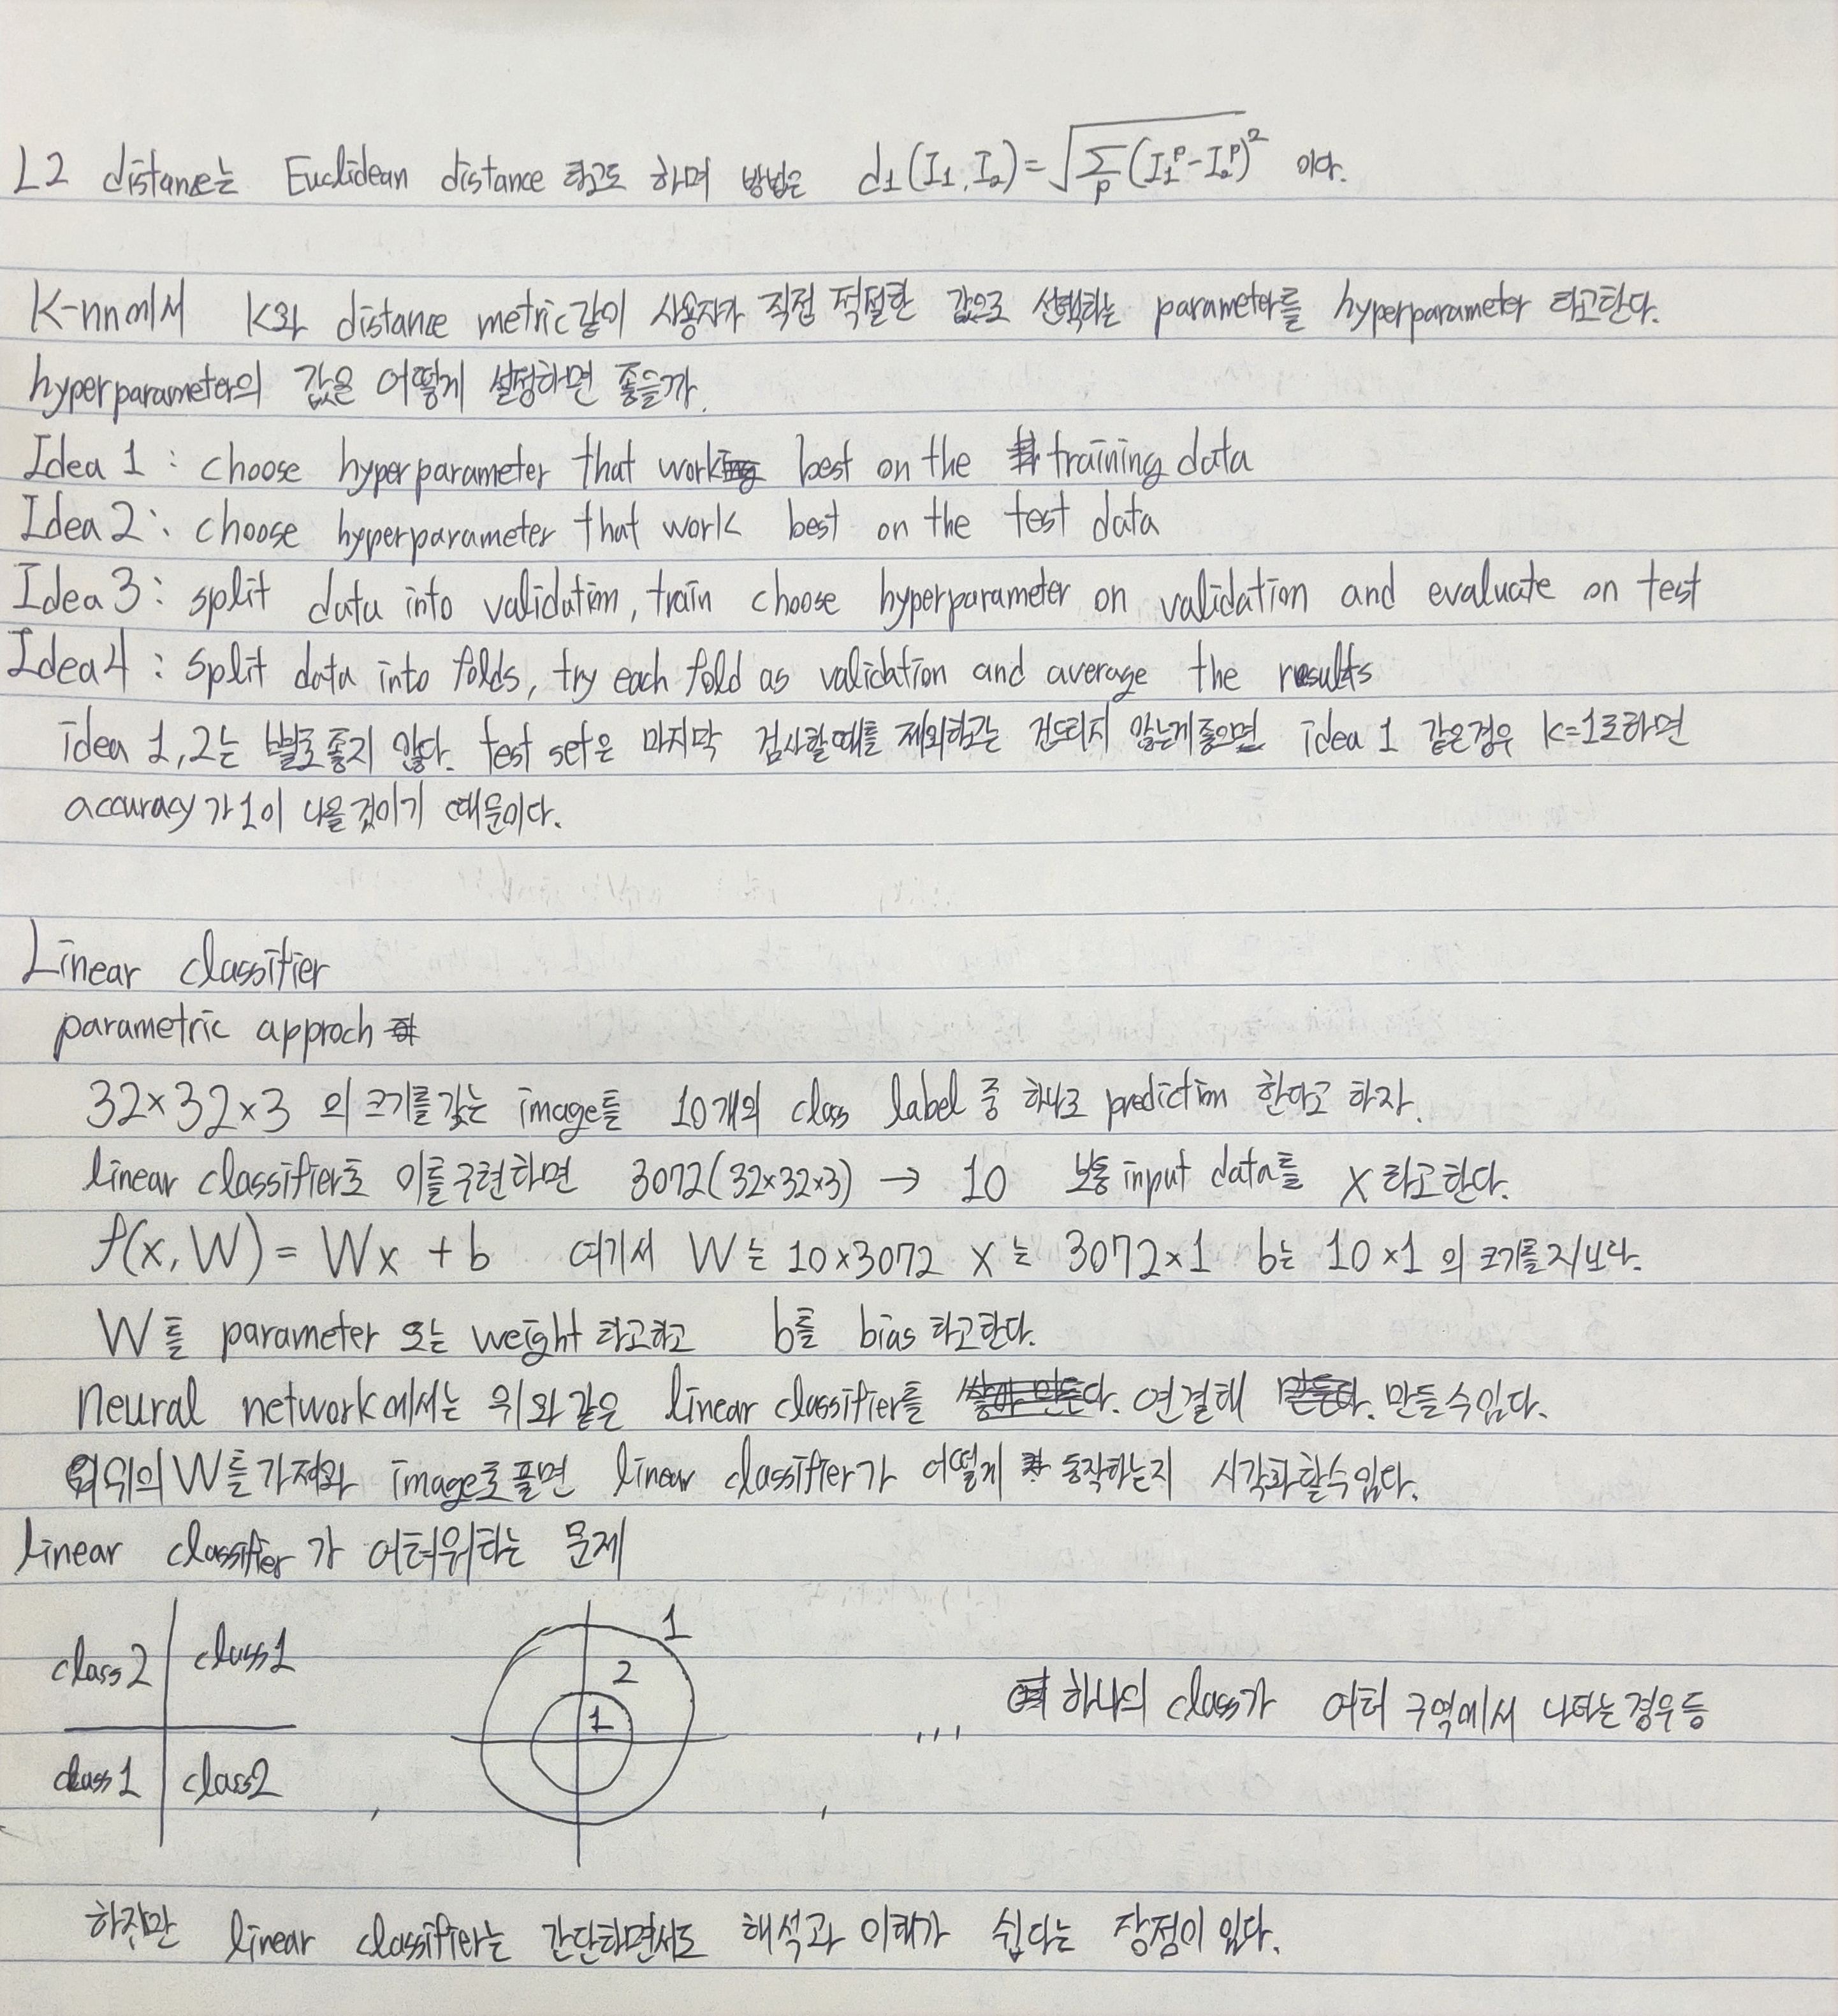 L2 distance는 Euclidean distance 라고도 하며 방법은 d1(I1, I2) = √Σp(I1^p - I2^p)^2 이다.
K-nn에서 K와 distance metric같이 사용자가 직접 적절한 값으로 선택하는 parameter를 hyperparameter 라고한다.
hyperparameter의 값은 어떻게 설정하면 좋을까.
Idea 1 : choose hyperparameter that work best on the training data
Idea 2 : choose hyperparameter that work best on the test data
Idea 3 : split data into validation, train choose hyperparameter on validation and evaluate on test
Idea 4 : split data into folds, try each fold as validation and average the results
idea 1,2는 별로좋지 않다. test set은 마지막 검사할때를 제외하고는 건드리지 않는게좋으면 idea 1 같은경우 K=1로하면
accuracy가 1이 나올것이기 때문이다.
Linear classifier
parametric approch
32×32×3 의크기를갖는 image를 10개의 class label 중 하나로 prediction 한다고 하자.
linear classifier로 이를구현하면 3072(32×32×3) → 10 보통 input data를 x라고한다.
f(x, W) = Wx + b 여기서 W는 10×3072 x는 3072×1 b는 10×1 의 크기를지닌다.
W를 parameter 또는 weight 라고하고 b를 bias라고한다.
Neural network에서는 위와같은 linear classifier를 연결해 만들수있다.
위의 W를가져와 image로풀면 linear classifier가 어떻게 동작하는지 시각화할수있다.
linear classifier가 어려워하는 문제
class2 class1
class1 class2
1
2
1
, , ... 하나의 class가 여러 구역에서 나타는경우등
하지만 linear classifier는 간단하면서도 해석과 이해가 쉽다는 장점이 있다.